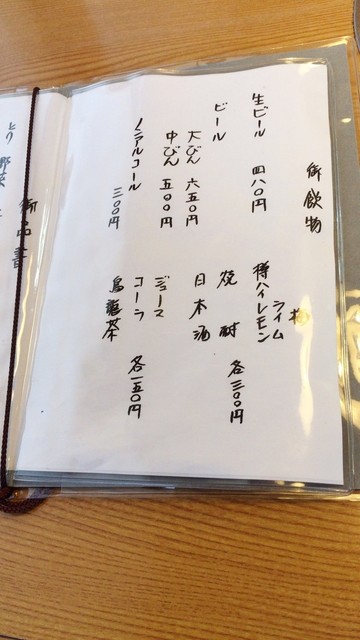 御飲物
生ビール 四八〇円
ビール
大びん 六五〇円
中びん 五〇〇円
ノンアルコール
三〇〇円
ライム
樽ハイレモン
焼酎 各三〇〇円
日本酒
ジュース
コーラ 各一五〇円
烏龍茶
御品書
とり野菜